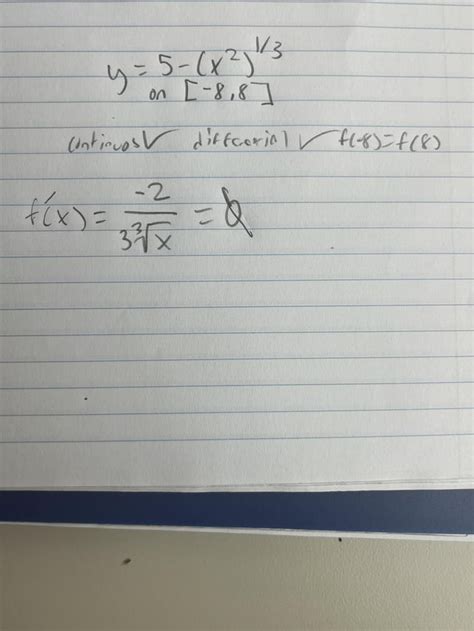 y = 5 - (x²)^1/3
on [-8,8]
continuos ✓ differerial ✓ f(-8)=f(8)
f'(x) = -2 / 3∛x = 0